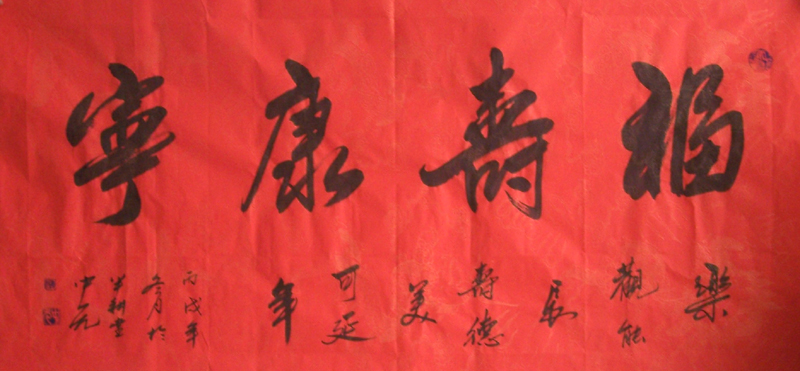 福壽康寧
樂
觀能
長
壽德
美
可延
年
丙戌年
冬月於
半耕堂
中元